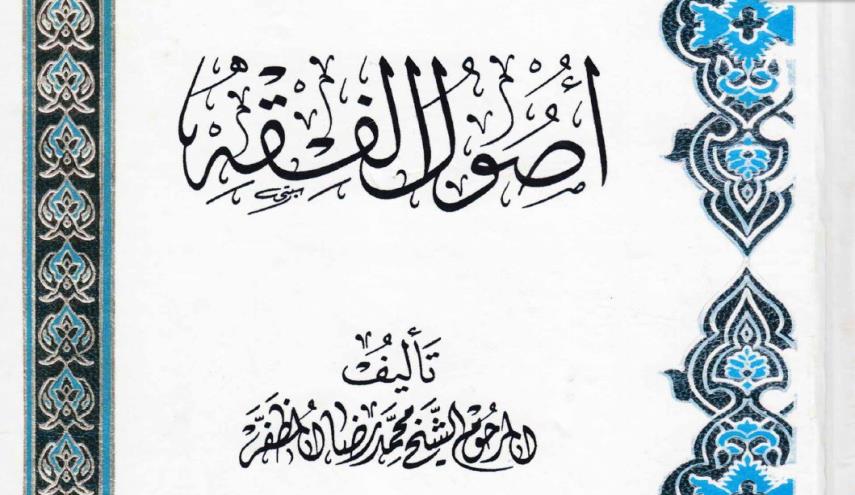 أُصُولُ الفِقْهِ
تَأليفُ
المرحوم الشيخ محمد رضا المظفر